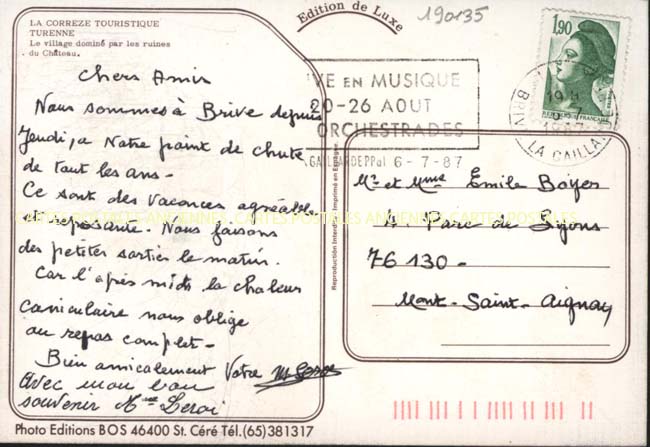 LA CORREZE TOURISTIQUE
TURENNE
Le village dominé par les ruines
du Château.
Edition de Luxe
190135
1,90
IVE EN MUSIQUE
20-26 AOUT
ORCHESTRADES
GAILLARDE PPAL 6-7-87
19 H
1987
BRIV
LA GAILLA
Chers Amis
Nous sommes à Brive depuis
Jeudi, a Notre point de chute
de tout les ans-
Ce sont des vacances agréable
et reposante. Nous faisons
des petites sorties le matin.
Car l'après midi la chaleur
caniculaire nous oblige
au repos complet-
Bien amicalement Votre
avec mon bon
souvenir Mme Leroi
CARTES POSTALES ANCIENNES, CARTES POSTALES ANCIENNES CARTES POSTALES
Reproduction Interdite Imprimé en Espagne
Mr et Mme Emile Boyer
Parc de Lyons
76 130 -
Mont-Saint-Aignan
Photo Editions BOS 46400 St. Céré Tél.(65)381317